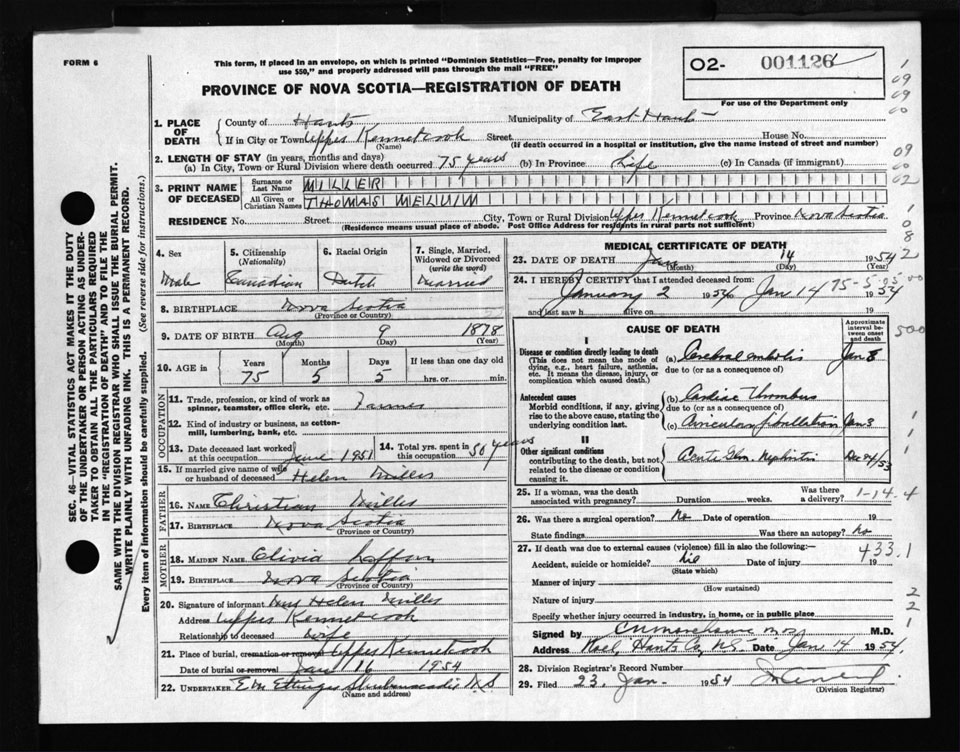 FORM 6
This form, if placed in an envelope, on which is printed "Dominion Statistics—Free, penalty for improper
use $50," and properly addressed will pass through the mail "FREE"
O2- 001126
For use of the Department only
PROVINCE OF NOVA SCOTIA—REGISTRATION OF DEATH
1. PLACE OF DEATH
County of Hants Municipality of East Hants
If in City or Town Upper Kennetcook Street House No.
(Name) (If death occurred in a hospital or institution, give the name instead of street and number)
2. LENGTH OF STAY (in years, months and days)
(a) In City, Town or Rural Division where death occurred 75 years (b) In Province Life (c) In Canada (if immigrant)
3. PRINT NAME OF DECEASED
Surname or Last Name MILLER
All Given or Christian Names THOMAS MELVIN
RESIDENCE No. Street City, Town or Rural Division Upper Kennetcook Province Nova Scotia
(Residence means usual place of abode. Post Office Address for residents in rural parts not sufficient)
4. Sex
Male
5. Citizenship
(Nationality)
Canadian
6. Racial Origin
Dutch
7. Single, Married,
Widowed or Divorced
(write the word)
Married
8. BIRTHPLACE Nova Scotia
(Province or Country)
9. DATE OF BIRTH Aug 9 1878
(Month) (Day) (Year)
10. AGE in
Years Months Days If less than one day old
75 5 5 hrs. or min.
OCCUPATION
11. Trade, profession, or kind of work as
spinner, teamster, office clerk, etc. Farmer
12. Kind of industry or business, as cotton-
mill, lumbering, bank, etc.
13. Date deceased last worked
at this occupation June 1951
14. Total yrs. spent in
this occupation 50 years
15. If married give name of wife
or husband of deceased Helen Miller
FATHER
16. NAME Christian Miller
17. BIRTHPLACE Nova Scotia
(Province or Country)
MOTHER
18. MAIDEN NAME Olivia
19. BIRTHPLACE Nova Scotia
(Province or Country)
20. Signature of informant Mrs Helen Miller
Address Upper Kennetcook
Relationship to deceased Wife
21. Place of burial, cremation or removal Upper Kennetcook
Date of burial or removal Jan 16 1954
22. UNDERTAKER E M Ettinger Shubenacadie N.S
(Name and address)
MEDICAL CERTIFICATE OF DEATH
23. DATE OF DEATH Jan 14 1954
(Month) (Day) (Year)
24. I HEREBY CERTIFY that I attended deceased from:
January 2 1954 to Jan 14 1954
and last saw h alive on 19
75-5-05
CAUSE OF DEATH
Approximate interval between onset and death
I
Disease or condition directly leading to death
(This does not mean the mode of
dying, e.g., heart failure, asthenia,
etc. It means the disease, injury, or
complication which caused death.
(a) Cerebral embolis Jan 8
due to (or as a consequence of)
Antecedent causes
Morbid conditions, if any, giving
rise to the above cause, stating the
underlying condition last.
(b) Cardiac Thrombus
due to (or as a consequence of)
(c) Auricular fibrillation Jan 3
II
Other significant conditions
contributing to the death, but not
related to the disease or condition
causing it.
Acute Glom. Nephritis Dec 24/53
25. If a woman, was the death
associated with pregnancy? Duration weeks. Was there
a delivery?
1-14-4
26. Was there a surgical operation? No Date of operation 19
State findings Was there an autopsy? No
27. If death was due to external causes (violence) fill in also the following:—
Accident, suicide or homicide? Date of injury 19
(State which)
433.1
Manner of injury
(How sustained)
Nature of injury
Specify whether injury occurred in industry, in home, or in public place
Signed by M.D.
Address Noel, Hants Co, N.S. Date Jan 14 1954.
28. Division Registrar's Record Number
29. Filed 23 Jan 1954
(Division Registrar)
SEC. 46—VITAL STATISTICS ACT MAKES IT THE DUTY
OF THE UNDERTAKER OR PERSON ACTING AS UNDER-
TAKER TO OBTAIN ALL THE PARTICULARS REQUIRED
IN THE "REGISTRATION OF DEATH" AND TO FILE THE
SAME WITH THE DIVISION REGISTRAR WHO SHALL ISSUE THE BURIAL PERMIT.
WRITE PLAINLY WITH UNFADING INK. THIS IS A PERMANENT RECORD.
Every item of information should be carefully supplied. (See reverse side for instructions.)